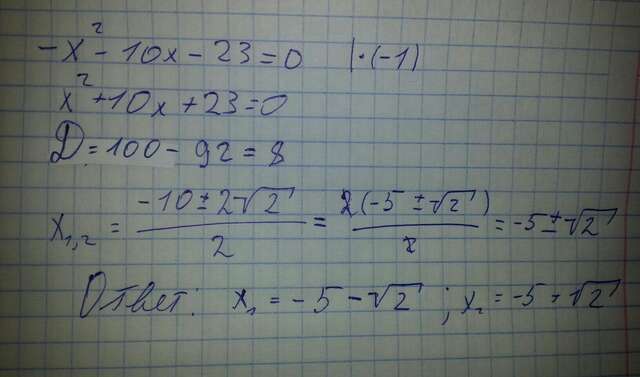 -x² - 10x - 23 = 0 | · (-1)
x² + 10x + 23 = 0
D = 100 - 92 = 8
x₁,₂ = (-10 ± 2√2) / 2 = 2(-5 ± √2) / 2 = -5 ± √2
Ответ: x₁ = -5 - √2 ; x₂ = -5 + √2